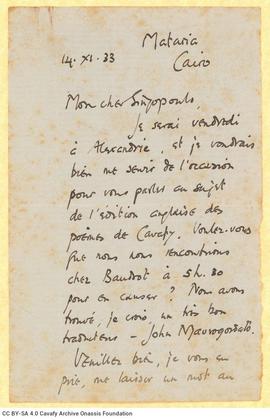 Mataria
Cairo
14. XI. 33
Mon cher Singopoulo,
Je serai vendredi
à Alexandrie, et je voudrais
bien me servir de l'occasion
pour vous parler au sujet
de l'édition anglaise des
poèmes de Cavafy. Voulez-vous
que nous nous rencontrions
chez Baudrot à 5 h. 30
pour en causer ? Nous avons
trouvé, je crois, un très bon
traducteur – John Mavrogordato.
Veuillez bien, je vous en
prie, me laisser un mot au
CC BY-SA 4.0 Cavafy Archive Onassis Foundation